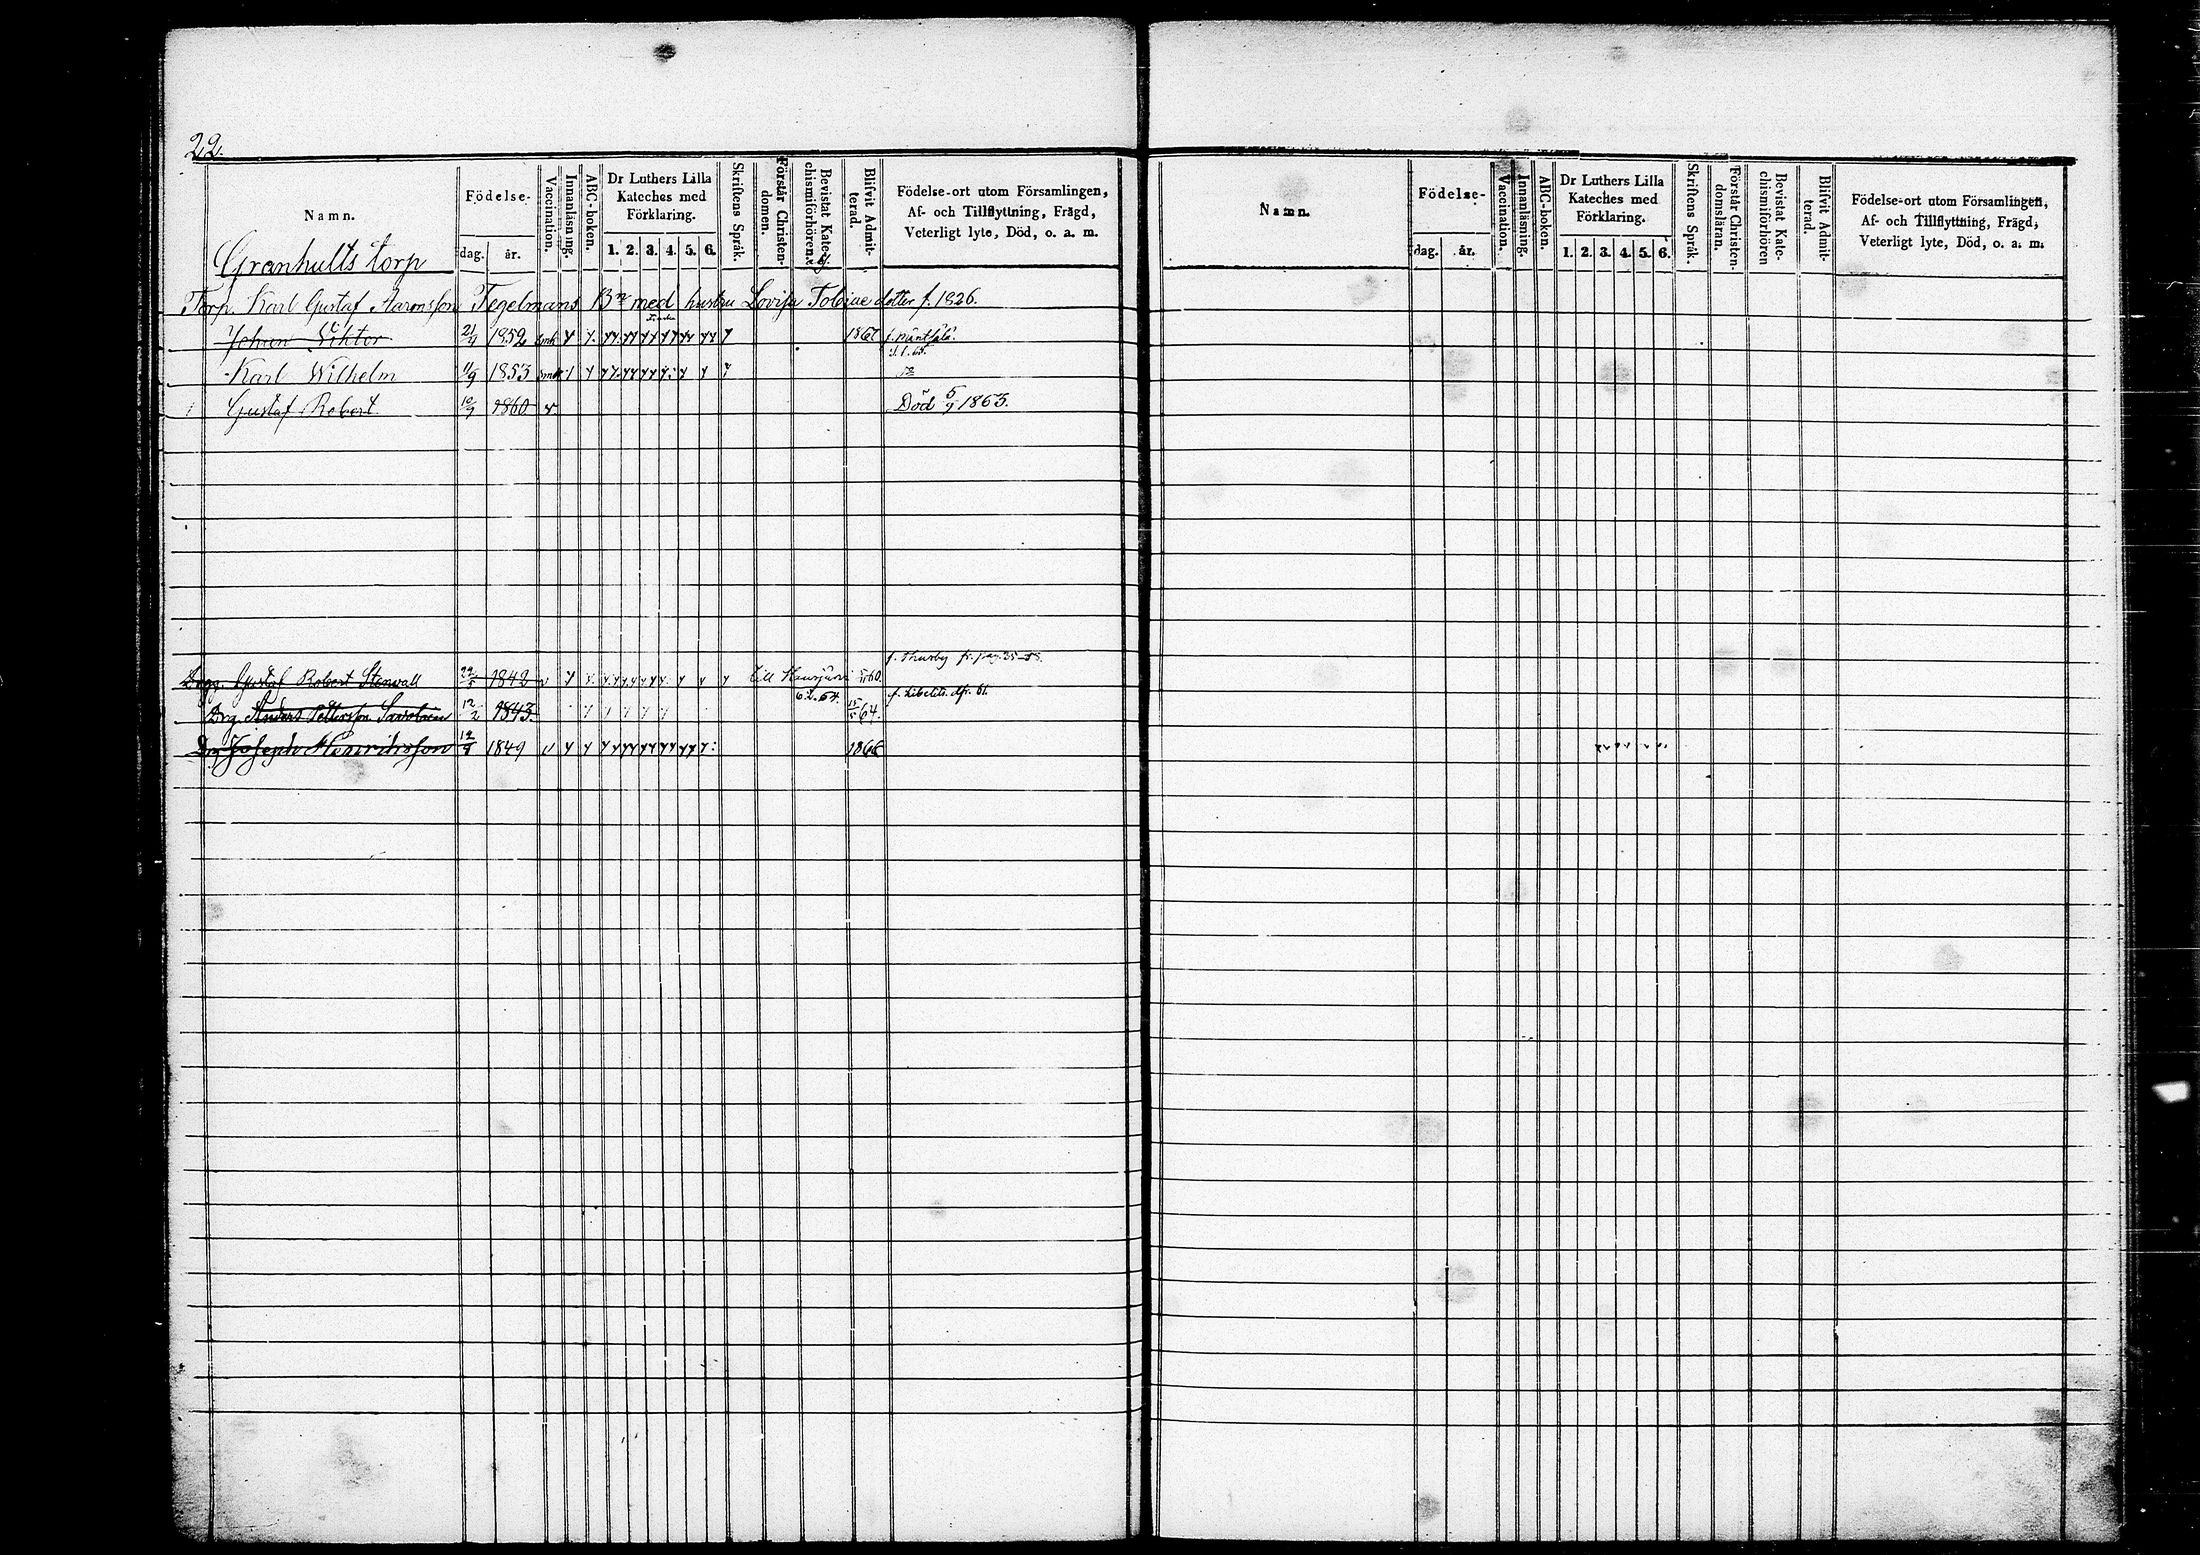 22.
Namn.
Födelse-
dag. år.
Vaccination.
Innanläsning.
ABC-boken.
Dr Luthers Lilla Kateches med Förklaring.
1. 2. 3. 4. 5. 6.
Skriftens Språk.
Förstår Christen-domen.
Bevistat Kate-chismiförhören.
Blifvit Admit-terad.
Födelse-ort utom Församlingen,
Af- och Tillflyttning, Frägd,
Veterligt lyte, Död, o. a. m.
Granhults torp
Torp. Karl Gustaf Aaronsson Tegelmans Bn med hustru Lovisa Tobiae dotter f. 1826.
Johan Viktor 21/4 1852 1867 f. Mäntsälä.
Karl Wilhelm 11/9 1853
Gustaf Robert. 10/7 1860 v Död 5/9 1863.
f. Thusby fr. pag. 35
Drg. Gustaf Robert Stenvall 22/5 1842 till Hausjärvi 60.
6.2.64. f. Libelits. 61.
Drg. Anders Pettersson Savolainen 12/2 1843. 64.
Drg Joseph Henriksson 12/8 1849 v 1866
Namn.
Födelse-
dag. år.
Vaccination.
Innanläsning.
ABC-boken.
Dr Luthers Lilla
Kateches med
Förklaring.
1. 2. 3. 4. 5. 6.
Skriftens Språk.
Förstår Christen-domsläran.
Bevistat Kate-chismiförhören
Blifvit Admit-terad.
Födelse-ort utom Församlingen,
Af- och Tillflyttning, Frägd,
Veterligt lyte, Död, o. a. m.